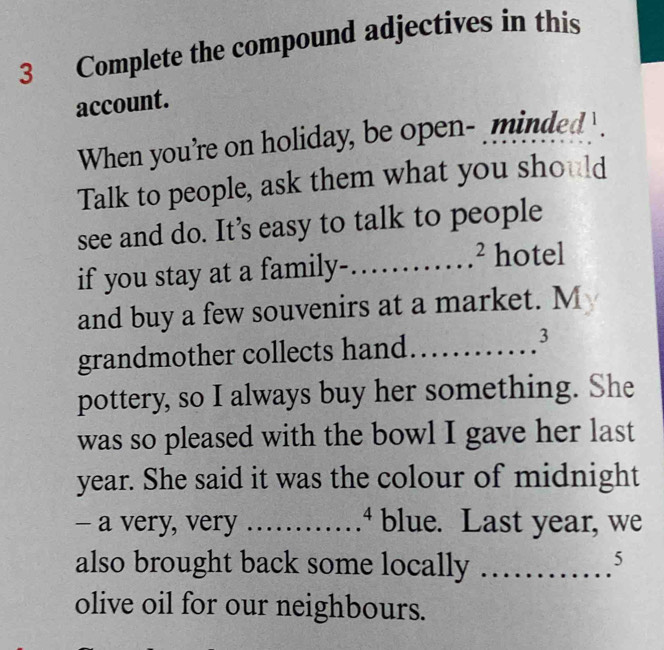 3 Complete the compound adjectives in this
account.
When you're on holiday, be open- minded¹.
Talk to people, ask them what you should
see and do. It's easy to talk to people
if you stay at a family-.............² hotel
and buy a few souvenirs at a market. My
grandmother collects hand.............³
pottery, so I always buy her something. She
was so pleased with the bowl I gave her last
year. She said it was the colour of midnight
– a very, very ............⁴ blue. Last year, we
also brought back some locally .............⁵
olive oil for our neighbours.